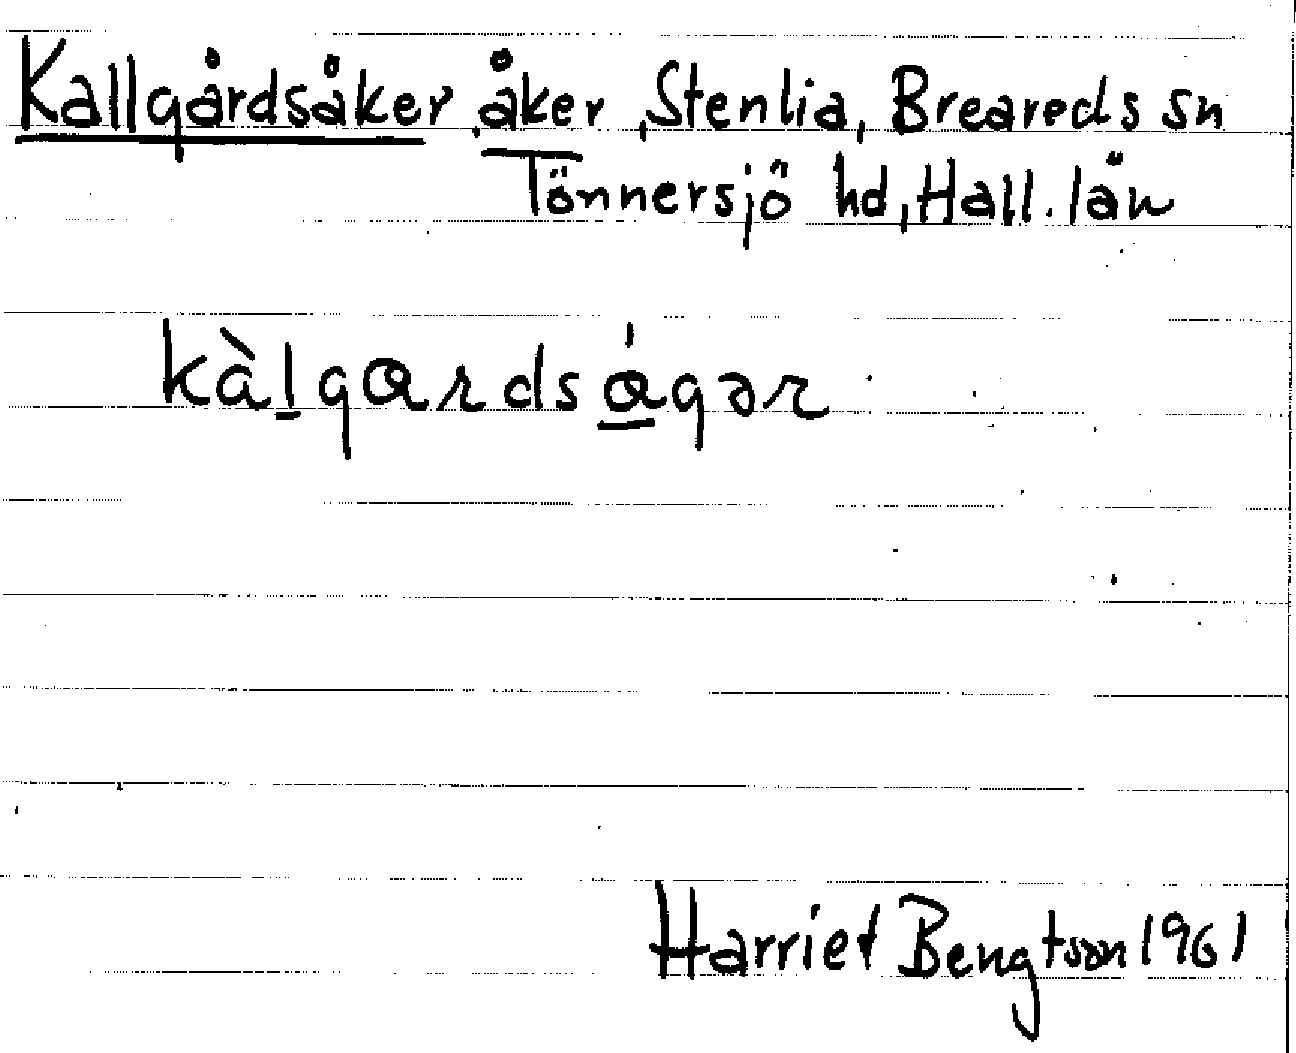 Kallgårdsåker, åker, Stenlia, Breareds sn
Tönnersjö hd, Hall. län
kàlgɑrdságər
Harriet Bengtson 1961